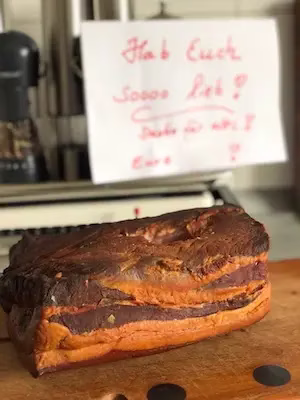 Hab Euch
Soooo lieb!
Danke für alles!
Eure